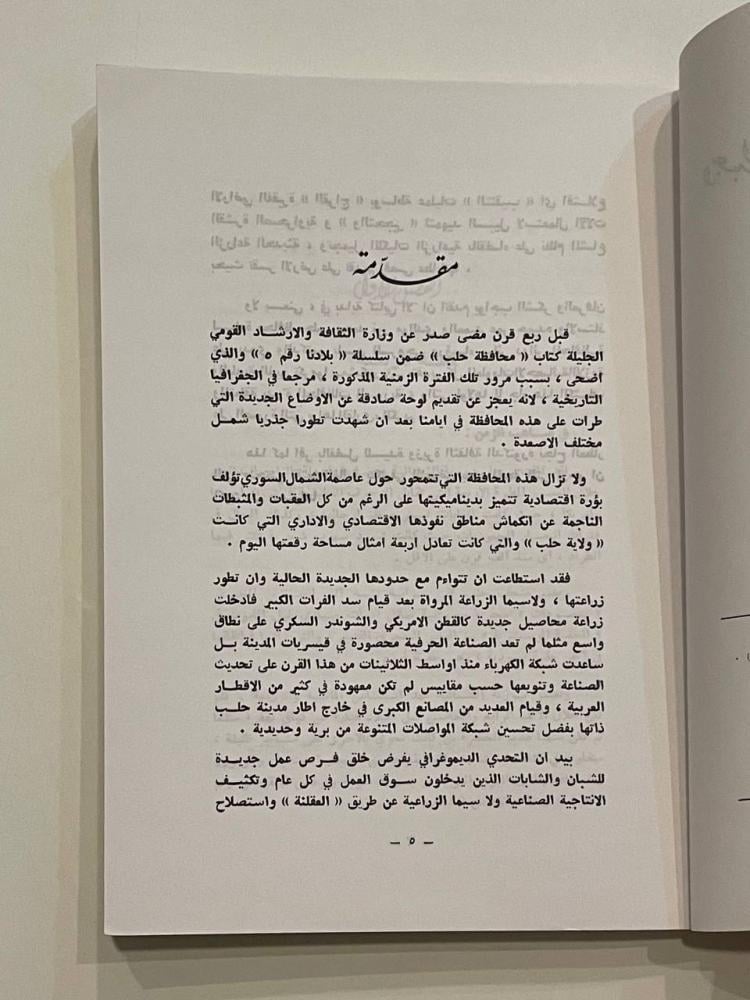 مقدّمة
قبل ربع قرن مضى صدر عن وزارة الثقافة والارشاد القومي
الجليلة كتاب « محافظة حلب » ضمن سلسلة « بلادنا رقم ٥ » والذي
اضحى ، بسبب مرور تلك الفترة الزمنية المذكورة ، مرجعا في الجغرافيا
التاريخية ، لانه يعجز عن تقديم لوحة صادقة عن الاوضاع الجديدة التي
طرات على هذه المحافظة في ايامنا بعد ان شهدت تطورا جذريا شمل
مختلف الاصعدة .
ولا تزال هذه المحافظة التي تتمحور حول عاصمة الشمال السوري تؤلف
بؤرة اقتصادية تتميز بديناميكيتها على الرغم من كل العقبات والمثبطات
الناجمة عن انكماش مناطق نفوذها الاقتصادي والاداري التي كانت
« ولاية حلب » والتي كانت تعادل اربعة امثال مساحة رقعتها اليوم .
فقد استطاعت ان تتواءم مع حدودها الجديدة الحالية وان تطور
زراعتها ، ولاسيما الزراعة المرواة بعد قيام سد الفرات الكبير فادخلت
زراعة محاصيل جديدة كالقطن الامريكي والشوندر السكري على نطاق
واسع مثلما لم تعد الصناعة الحرفية محصورة في قيسريات المدينة بل
ساعدت شبكة الكهرباء منذ اواسط الثلاثينات من هذا القرن على تحديث
الصناعة وتنويعها حسب مقاييس لم تكن معهودة في كثير من الاقطار
العربية ، وقيام العديد من المصانع الكبرى في خارج اطار مدينة حلب
ذاتها بفضل تحسين شبكة المواصلات المتنوعة من برية وحديدية .
بيد ان التحدي الديموغرافي يفرض خلق فرص عمل جديدة
للشبان والشابات الذين يدخلون سوق العمل في كل عام وتكثيف
الانتاجية الصناعية ولا سيما الزراعية عن طريق « العقلنة » واستصلاح
– ٥ –